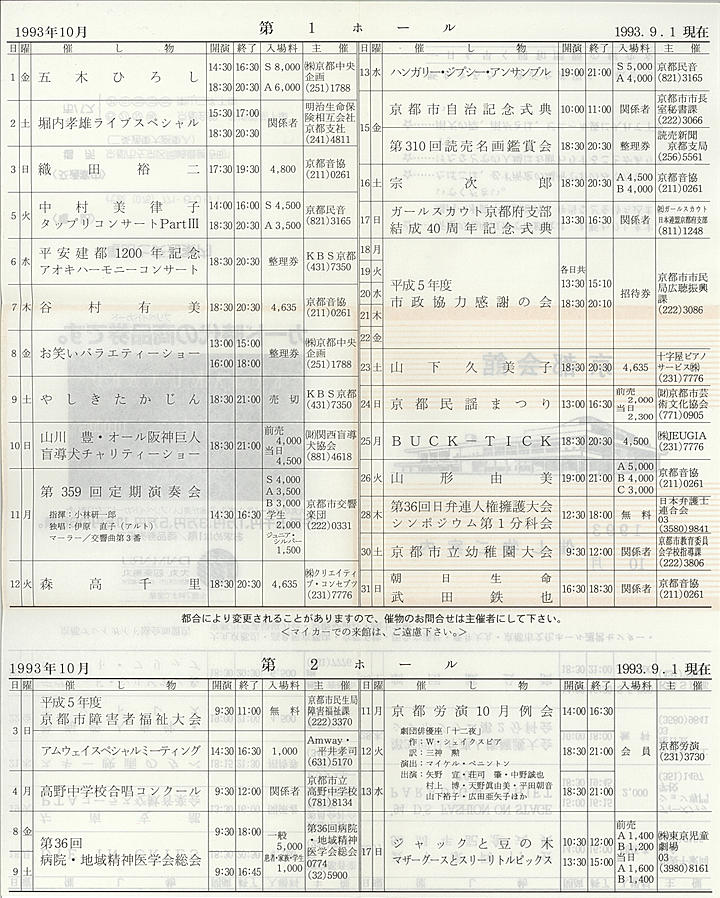 1993年10月 第1ホール 1993.9.1現在
日 曜 催し物 開演 終了 入場料 主催
1 金 五木ひろし 14:30 16:30 S 8,000 ㈱京都中央企画
18:30 20:30 A 6,000 (251)1788
2 土 堀内孝雄ライブスペシャル 15:30 17:00 関係者 明治生命保険相互会社京都支社
18:30 20:30 (241)4811
3 日 織田裕二 17:30 19:30 4,800 京都音協
(211)0261
5 火 中村美律子 14:00 16:00 S 4,500 京都民音
タップリコンサートPartⅢ 18:30 20:30 A 3,500 (821)3165
6 水 平安建都1200年記念 18:30 20:30 整理券 KBS京都
アオキハーモニーコンサート (431)7350
7 木 谷村有美 18:30 20:30 4,635 京都音協
(211)0261
8 金 お笑いバラエティーショー 13:00 15:00 整理券 ㈱京都中央企画
16:00 18:00 (251)1788
9 土 やしきたかじん 18:30 21:00 売切 KBS京都
(431)7350
10 日 山川 豊・オール阪神巨人 18:30 21:00 前売 4,000 ㈶関西盲導犬協会
盲導犬チャリティーショー 当日 4,500 (881)4618
11 月 第359回定期演奏会 14:30 16:30 S 4,000 京都市交響楽団
A 3,500 (222)0331
B 3,000
指揮：小林研一郎 学生 2,000
独唱：伊原 直子（アルト） ジュニア・シルバー 1,500
マーラー／交響曲第3番
12 火 森高千里 18:30 20:30 4,635 ㈱クリエイティブ・コンセプツ
(231)7776
日 曜 催し物 開演 終了 入場料 主催
13 水 ハンガリー・ジプシー・アンサンブル 19:00 21:00 S 5,000 京都民音
A 4,000 (821)3165
15 金 京都市自治記念式典 10:00 11:00 関係者 京都市市長室秘書課
(222)3066
第310回読売名画鑑賞会 18:30 20:30 整理券 読売新聞京都支局
(256)5561
16 土 宗次郎 18:30 20:30 A 4,500 京都音協
B 4,000 (211)0261
17 日 ガールスカウト京都府支部 13:30 16:30 関係者 ㈳ガールスカウト日本連盟京都府支部
結成40周年記念式典 (811)1248
18 月
19 火 各日共
20 水 平成5年度 13:30 15:10 招待券 京都市市民局広聴振興課
21 木 市政協力感謝の会 18:30 20:10 (222)3086
22 金
23 土 山下久美子 18:30 20:30 4,635 十字屋ピアノサービス㈱
(231)7776
24 日 京都民謡まつり 13:00 16:30 前売 2,000 ㈶京都市芸術文化協会
当日 2,300 (771)0905
25 月 BUCK-TICK 18:30 20:30 4,500 ㈱JEUGIA
(231)7776
26 火 山形由美 19:00 21:00 A 5,000 京都音協
B 4,000 (211)0261
C 3,000
28 木 第36回日弁連人権擁護大会 12:30 18:00 無料 日本弁護士連合会
シンポジウム第1分科会 03(3580)9841
30 土 京都市立幼稚園大会 9:30 12:00 関係者 京都市教育委員会学校指導課
(222)3806
31 日 朝日生命 16:30 18:30 関係者 京都音協
武田鉄也 (211)0261
都合により変更されることがありますので、催物のお問合せは主催者にして下さい。
＜マイカーでの来館は、ご遠慮下さい。＞
1993年10月 第2ホール 1993.9.1現在
日 曜 催し物 開演 終了 入場料 主催
3 日 平成5年度 9:30 11:00 無料 京都市民生局障害福祉課
京都市障害者福祉大会 (222)3370
アムウェイスペシャルミーティング 14:30 16:30 1,000 Amway・平井孝司
(631)5170
4 月 高野中学校合唱コンクール 9:30 12:00 関係者 京都市立高野中学校
(781)8134
8 金 第36回 9:30 18:00 一般 5,000 第36回病院・地域精神医学会総会
9 土 病院・地域精神医学会総会 9:30 16:45 患者・家族・学生 1,000 0774(32)5900
日 曜 催し物 開演 終了 入場料 主催
11 月 京都労演10月例会 14:00 16:30
劇団俳優座「十二夜」
作：W・シェイクスピア
12 火 訳：三神 勲 18:30 21:00 会員 京都労演
演出：マイケル・ペニントン (231)3730
出演：矢野 宣・荘司 肇・中野誠也
13 水 村上 博・天野眞由美・平田朝音
山下裕子・広田亜矢子ほか
17 日 ジャックと豆の木 10:30 12:00 前売 A 1,400 B 1,200 ㈱東京児童劇場
マザーグースとスリーリトルピックス 13:30 15:00 当日 A 1,600 B 1,400 03(3980)8161